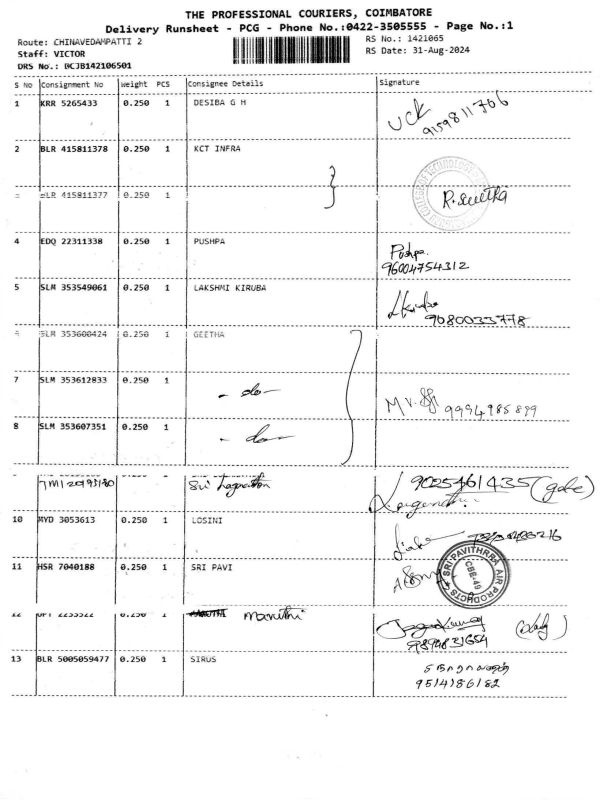 THE PROFESSIONAL COURIERS, COIMBATORE
Delivery Runsheet - PCG - Phone No.:0422-3505555 - Page No.:1
Route: CHINAVEDAMPATTI 2
RS No.: 1421065
Staff: VICTOR
RS Date: 31-Aug-2024
DRS No.: BCJB142106501
S No Consignment No Weight PCS Consignee Details Signature
1 KRR 5265433 0.250 1 DESIBA G H
UCK
9159811706
2 BLR 415811378 0.250 1 KCT INFRA
BLR 415811377 0.250 1
4 EDQ 22311338 0.250 1 PUSHPA Pushpa.
96004754312
5 SLM 353549061 0.250 1 LAKSHMI KIRUBA
9080033778
SLM 353600424 0.250 1 GEETHA
7 SLM 353612833 0.250 1 - do -
9994985899
8 SLM 353607351 0.250 1 - do -
Sri 9025461435
10 MYD 3053613 0.250 1 LOSINI
11 HSR 7040188 0.250 1 SRI PAVI
SRI PAVITHRRA AIR PRODUCTS
CBE-49
12 0.250 1 Maruthi
9894831654
13 BLR 5005059477 0.250 1 SIRUS
9514186182